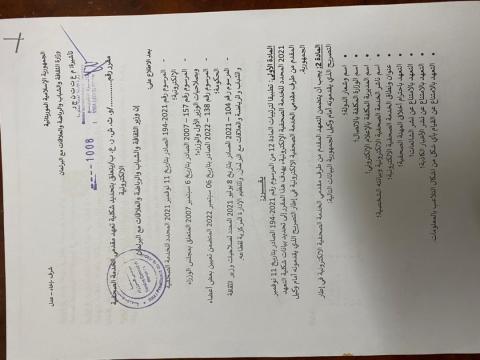 الجمهورية الإسلامية الموريتانية
شرف - إخاء - عدل
وزارة الثقافة والشباب والرياضة والعلاقات مع البرلمان
1008
مقرر رقم /و.ث.ش.ر.ع.ب/يتعلق بتحديد شكلية تعهد مقدمي الخدمة الصحفية
الالكترونية
إن وزير الثقافة والشباب والرياضة والعلاقات مع البرلمان
بعد الاطلاع على:
- المرسوم رقم 2021-194 الصادر بتاريخ 11 نوفمبر 2021 المحدد للخدمة الصحفية
الإلكترونية؛
- المرسوم رقم 157-2007 الصادر بتاريخ 6 سبتمبر 2007 المتعلق بمجلس الوزراء
وبصلاحيات الوزير الأول والوزراء؛
- المرسوم رقم 138-2022 الصادر بتاريخ 06 سبتمبر 2022 المتضمن تعيين بعض أعضاء
الحكومة؛
- المرسوم رقم 104-2021 الصادر بتاريخ 8 يوليو 2021 المحدد لصلاحيات وزير الثقافة
والشباب والرياضة والعلاقات مع البرلمان، ولتنظيم الإدارة المركزية لقطاعه.
يقـــرر:
المادة الأولى: تطبيقا لترتيبات المادة 12 من المرسوم رقم 2021-194 الصادر بتاريخ 11 نوفمبر
2021 المحدد للخدمة الصحفية الإلكترونية، يهدف هذا المقرر إلى تحديد بيانات شكلية التعهد
المقدم من طرف مقدمي الخدمة الصحفية الإلكترونية في إطار التصريح الذي يقدمونه أمام وكيل
الجمهورية.
المادة 2: يجب أن يتضمن التعهد المقدم من طرف مقدمي الخدمة الصحفية الإلكترونية في إطار
التصريح الذي يقدمونه أمام وكيل الجمهورية البيانات التالية:
اسم وشعار الدولة؛
اسم الوزارة المكلفة بالاتصال؛
اسم المديرية المكلفة بالإعلام الإلكتروني؛
عنوان ونطاق الخدمة الصحفية الإلكترونية؛
ناشر الخدمة الصحفية الإلكترونية وبياناته الشخصية؛
التعهد باحترام أخلاق المهنة الصحفية؛
التعهد بالامتناع عن نشر الشائعات؛
التعهد بالامتناع عن نشر الأخبار الكاذبة؛
التعهد بالامتناع عن القيام بأي شكل من أشكال التلاعب بالمعلومات